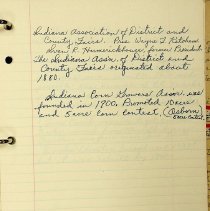 Indiana Association of District and
County Fairs. Pres. Wayne I.
Evan R. Humerickhouse, former President.
The Indiana Assn. of District and
County Fairs originated about
1880.
Indiana Corn Growers Assn. was
founded in 1900. Promoted 10 acre
and 5 acre Corn Contest, (Osborn
5 acre Contest